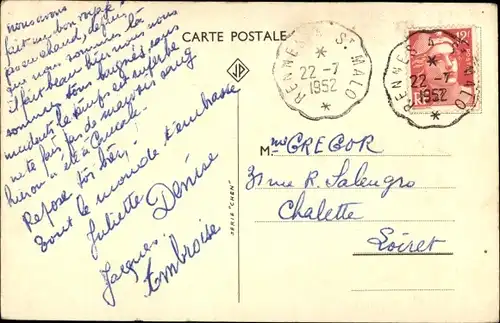 nous avons
fait un bon voyage
peu chaud, depuis
que nous sommes là
il fait beau hier nous nous
sommes tous baignés sans
incidents, le temps est superbe
ne te fais pas de mauvais sang
hier on a été à Cancale.
Repose toi bien!
tout le monde t'embrasse
Juliette Denise
Jacques Ambroise
CARTE POSTALE
JA
SERIE "CHEN"
RENNES A ST MALO
22-7
1952
RENNES A ST MALO
22-7
1952
12F
Mme GREGOR
31 rue R. Salengro
Chalette
Loiret